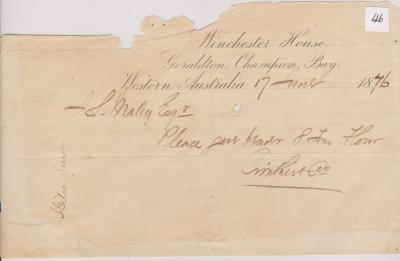 46
Winchester House,
Geraldton, Champion Bay,
Western Australia 17 June 1876
J. S. Maley Esqr
Please give bearer 8 Tons Flour
& Co